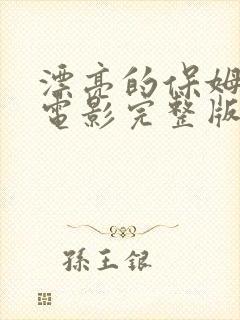 漂亮的保姆
電影完整版
孫王銀